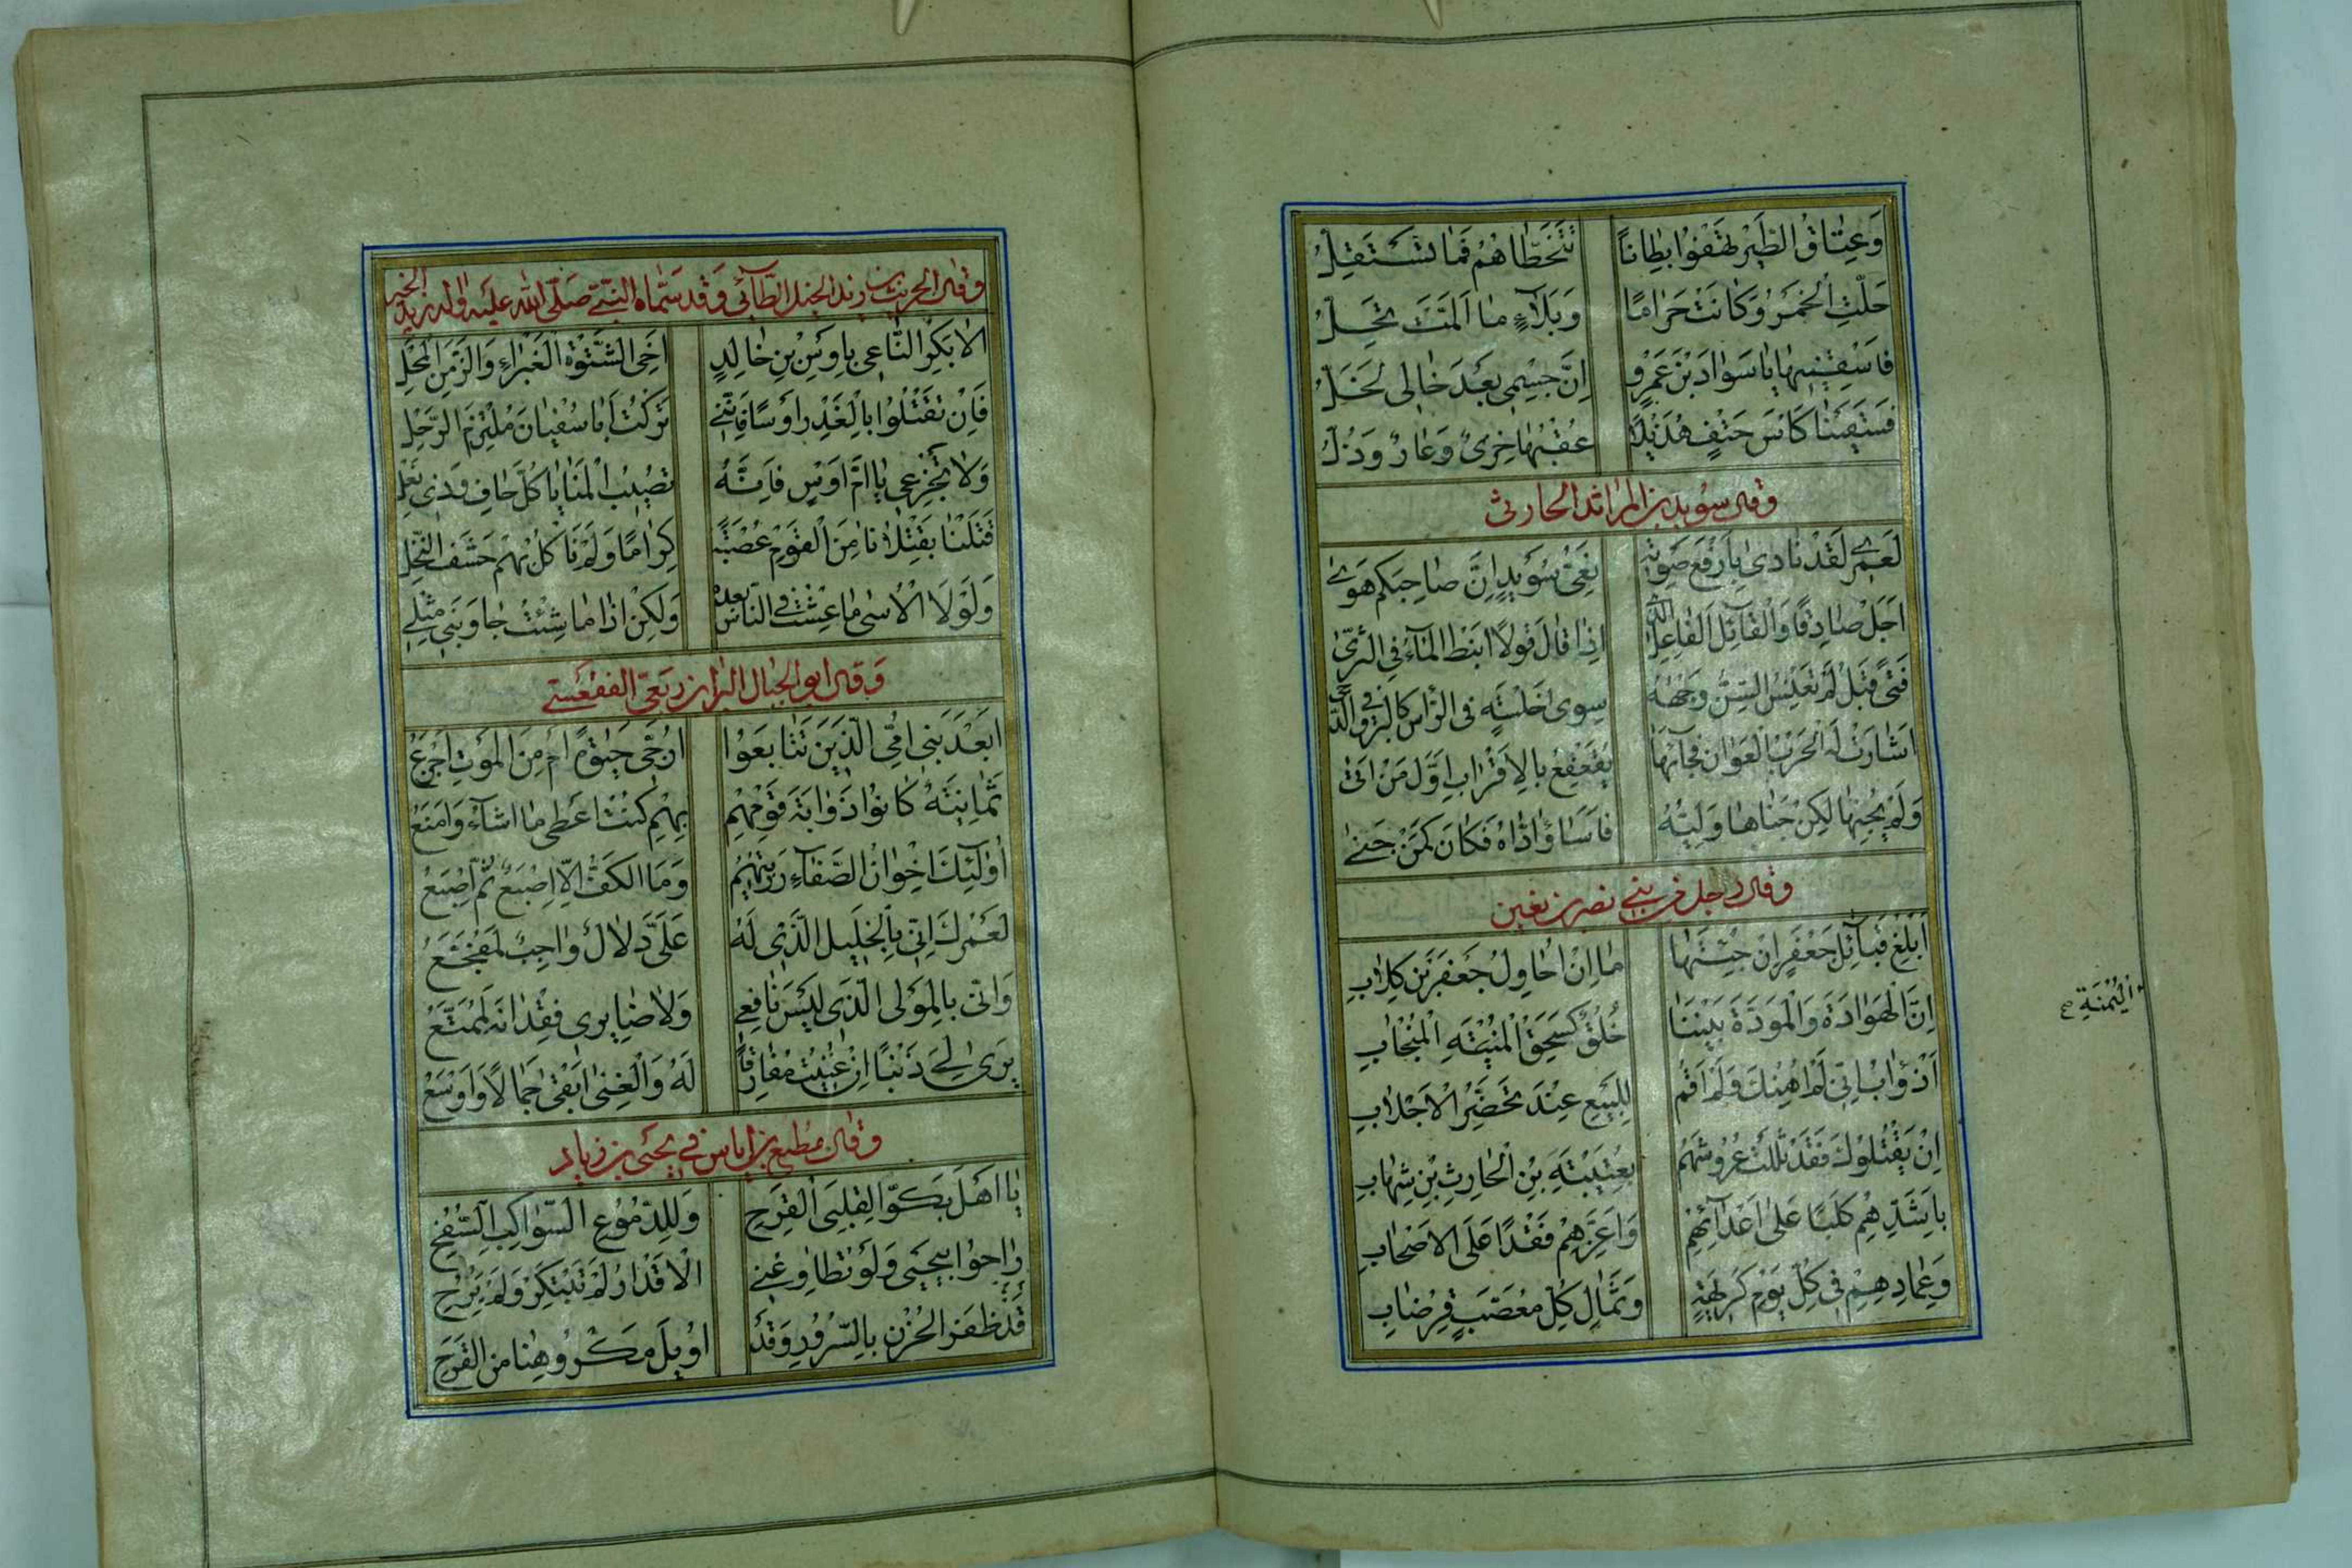 وَعِتَاقُ الطَّيْرِ تَهْفُوا بِطَاناً تَتَخَطَّاهُمْ فَمَا تَسْتَقِلُّ
حَلَّتِ الْخَمْرُ وَكَانَتْ حَرَامًا وَبِلَأْيٍ مَا اَلَمَّتْ تَحِلُّ
فَاسْقِنِيهَا يَا سَوَادَ بْنَ عَمْرٍو اِنَّ جِسْمِي بَعْدَ خَالِي لَخَلُّ
فَسَقَيْنَا كَأْسَ حَتْفٍ هُذَيْلًا عُقْبُهَا خِزْىٌ وَعَارٌ وَذُلُّ
وقال سويد بن المراثد الحارثى
لَعَمْرِي لَقَدْ نَادَى بِأَرْفَعِ صَوْتِهِ نَعِيُّ سُوَيْدٍ اِنَّ صَاحِبَكُمْ هَوَى
اَجَلْ صَادِقًا وَالْقَائِلُ الْفَاعِلُ الَّذِي اِذَا قَالَ قَوْلًا اَنْبَطَ الْمَاءَ فِي الثَّرَى
فَتًى قَبَلٌ لَمْ تُعْنِسِ السِّنُّ وَجْهَهُ سِوَى خُلْسَةٍ فِي الرَّأْسِ كَالْبَرْقِ فِي الدُّجَى
اَشَارَتْ لَهُ الْحَرْبُ الْعَوَانُ فَجَاءَهَا يُقَعْقِعُ بِالْاَقْرَابِ اَوَّلَ مَنْ اَتَى
وَلَمْ يَجْنِهَا لَكِنْ جَنَاهَا وَلِيُّهُ فَآسَا وَاٰدَاهُ فَكَانَ كَمَنْ جَنَى
وقال رجل من بني نصر بن قعين
اَبْلِغْ قَبَائِلَ جَعْفَرٍ اِنْ جِئْتَهَا مَا اِنْ اُحَاوِلُ جَعْفَرَ بْنَ كِلَابِ
اِنَّ الْهَوَادَةَ وَالْمَوَدَّةَ بَيْنَنَا خُلُقٌ كَسَحْقِ الْمُنْيَةِ الْمُنْجَابِ
اَذُؤَابُ اِنِّي لَمْ اَهِنْكَ وَلَمْ اَقُمْ لِلْبَيْعِ عِنْدَ تَحَضُّرِ الْاَجْلَابِ
اِنْ يَقْتُلُوكَ فَقَدْ ثَلَلْتَ عُرُوشَهُمْ بِعُتَيْبَةَ بْنِ الْحَارِثِ بْنِ شِهَابِ
بِاَشَدِّهِمْ كَلَبًا عَلَى اَعْدَائِهِمْ وَاَعَزِّهِمْ فَقْدًا عَلَى الْاَصْحَابِ
وَعِمَادِهِمْ فِي كُلِّ يَوْمِ كَرِيهَةٍ وَثِمَالِ كُلِّ مُعَصَّبٍ قِرْضَابِ
الْيُمْنَةِ
وقال الحريث بن زيد الخيل الطائي وقد سماه النبي صلى الله عليه واله زيد الخير
اَلَا بَكَرَ النَّاعِي بِاَوْسِ بْنِ خَالِدٍ اَخِي الشَّتْوَةِ الْغَبْرَاءِ وَالزَّمَنِ الْمَحْلِ
فَاِنْ تَقْتُلُوا بِالْغَدْرِ اَوْسًا فَاِنَّنِي تَرَكْتُ اَبَا سُفْيَانَ مُلْتَزِمَ الرَّحْلِ
وَلَا تَجْزَعِي يَا اُمَّ اَوْسٍ فَاِنَّهُ تُصِيبُ الْمَنَايَا كُلَّ حَافٍ وَذِي نَعْلِ
قَتَلْنَا بِقَتْلَانَا مِنَ الْقَوْمِ عُصْبَةً كِرَامًا وَلَمْ نَأْكُلْ بِهِمْ حَشَفَ النَّخْلِ
وَلَوْلَا الْاُسَى مَا عِشْتُ فِي النَّاسِ بَعْدَهُ وَلَكِنْ اِذَا مَا شِئْتُ جَاوَبَنِي مِثْلِي
وقال ابو الحبال البراء بن ربعي الفقعسي
اَبَعْدَ بَنِي اُمِّي الَّذِينَ تَتَابَعُوا اُرَجِّي حَيٰوةً اَمْ مِنَ الْمَوْتِ اَجْزَعُ
ثَمَانِيَةٌ كَانُوا ذُؤَابَةَ قَوْمِهِمْ بِهِمْ كُنْتُ اُعْطِي مَا اَشَاءُ وَاَمْنَعُ
اُولَئِكَ اِخْوَانُ الصَّفَاءِ رُزِيتُهُمْ وَمَا الْكَفُّ اِلَّا اِصْبَعٌ ثُمَّ اِصْبَعُ
لَعَمْرُكَ اِنِّي بِالْخَلِيلِ الَّذِي لَهُ عَلَيَّ دَلَالٌ وَاجِبٌ لَمُفَجَّعُ
وَاِنِّي بِالْمَوْلَى الَّذِي لَيْسَ نَافِعِي وَلَا ضَايِرِي فِقْدَانُهُ لَمُمَتَّعُ
يَرَى لِي ذَنْبًا اِنْ غَنِيتُ مُفَارِقًا لَهُ وَالْغِنَى اَبْقَى جَمَالًا وَاَوْسَعُ
وقال مطيع بن اياس في يحيى بن زياد
يَا اَهْلِ بَكُّوا لِقَلْبِيَ الْقَرِحِ وَلِلدُّمُوعِ السَّوَاكِبِ السُّفُحِ
رَاحُوا بِيَحْيَى وَلَوْ تُطَاوِعُنِي الْاَقْدَارُ لَمْ تَبْتَكِرْ وَلَمْ تَرُحِ
قَدْ ظَفِرَ الْحُزْنُ بِالسُّرُورِ وَقَدْ اُدِيلَ مَكْرُوهُنَا مِنَ الْفَرَحِ